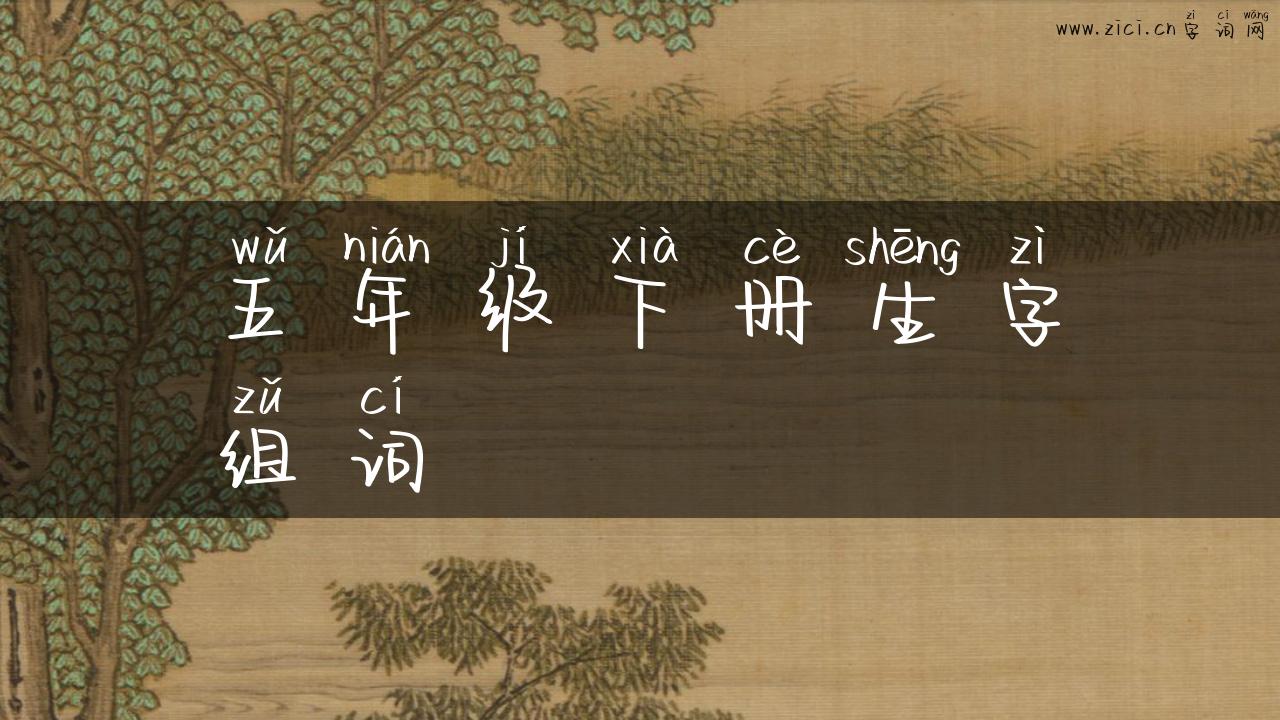 zì cí wǎng
www.zici.cn字词网
wǔ nián jí xià cè shēng zì
五年级下册生字
zǔ cí
组词